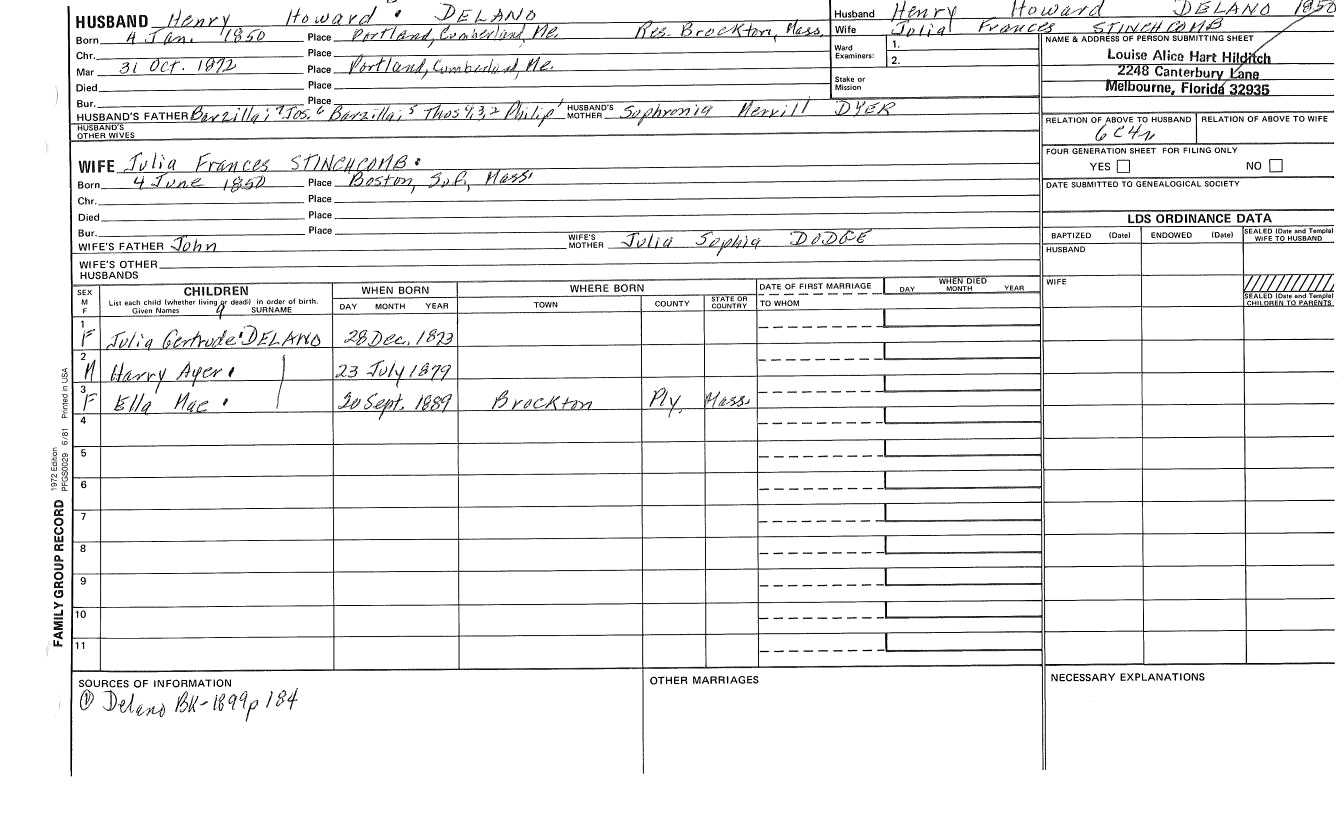 HUSBAND Henry Howard DELANO
Born 4 Jan. 1850 Place Portland, Cumberland, Me. Res. Brockton, Mass.
Chr. Place
Mar 31 Oct. 1872 Place Portland, Cumberland, Me.
Died Place
Bur. Place
HUSBAND'S FATHER Barzillai,7 Jos.6 Barzillai,5 Thos 4,3,2 Philip1 HUSBAND'S MOTHER Sophronia Merrill DYER
HUSBAND'S OTHER WIVES
WIFE Julia Frances STINCHCOMB
Born 4 June 1850 Place Boston, Suf., Mass.
Chr. Place
Died Place
Bur. Place
WIFE'S FATHER John WIFE'S MOTHER Julia Sophia DODGE
WIFE'S OTHER HUSBANDS
Husband Henry Howard DELANO 1850
Wife Julia Frances STINCHCOMB
Ward Examiners: 1.
2.
Stake or Mission
NAME & ADDRESS OF PERSON SUBMITTING SHEET
Louise Alice Hart Hilditch
2248 Canterbury Lane
Melbourne, Florida 32935
RELATION OF ABOVE TO HUSBAND RELATION OF ABOVE TO WIFE
6C4R
FOUR GENERATION SHEET FOR FILING ONLY
YES NO
DATE SUBMITTED TO GENEALOGICAL SOCIETY
LDS ORDINANCE DATA
BAPTIZED (Date) ENDOWED (Date) SEALED (Date and Temple) WIFE TO HUSBAND
HUSBAND
WIFE
SEALED (Date and Temple) CHILDREN TO PARENTS
SEX M F CHILDREN WHEN BORN WHERE BORN DATE OF FIRST MARRIAGE WHEN DIED
List each child (whether living or dead) in order of birth. DAY MONTH YEAR TOWN COUNTY STATE OR COUNTRY TO WHOM DAY MONTH YEAR
Given Names 9 SURNAME
1 F Julia Gertrude DELANO 28 Dec. 1873
2 M Harry Ayer 23 July 1879
3 F Ella Mae 20 Sept. 1889 Brockton Ply. Mass.
4
5
6
7
8
9
10
11
FAMILY GROUP RECORD 1972 Edition PFGS0029 6/81 Printed in USA
SOURCES OF INFORMATION
① Delano BK-1899 p 184
OTHER MARRIAGES
NECESSARY EXPLANATIONS